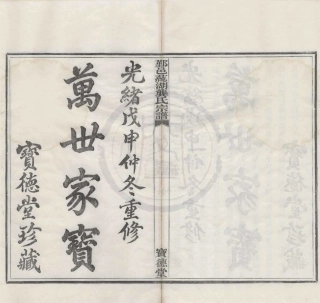 鄞邑蘇湖龔氏宗譜
寶德堂
光緒戊申仲冬重修
萬世家寶
寶德堂珍藏